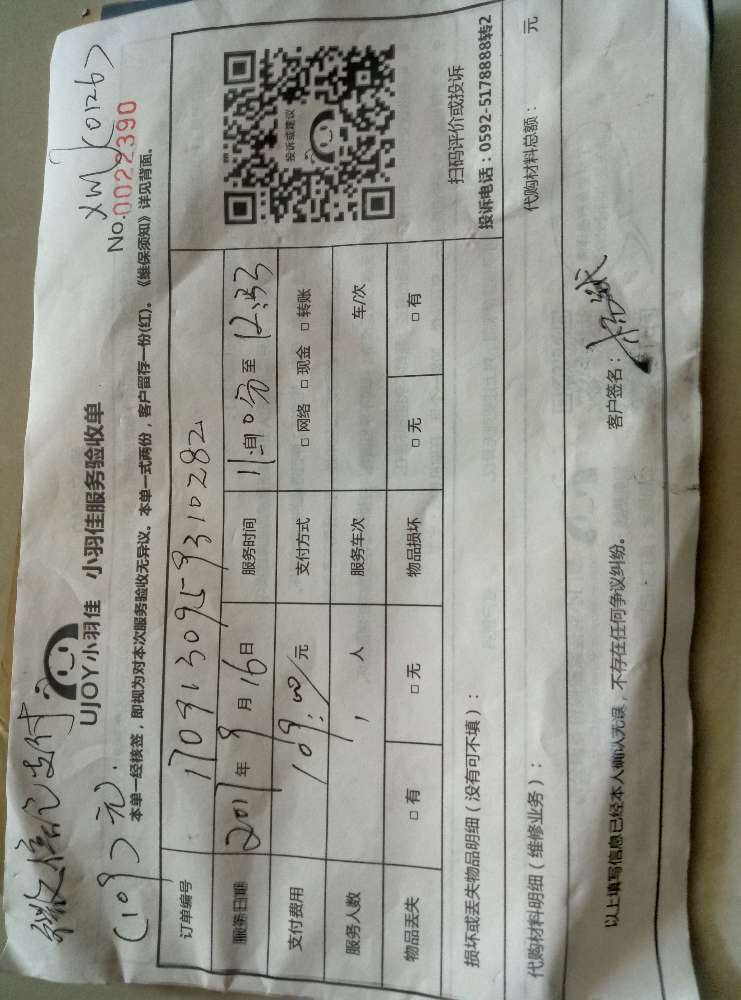 微信支付
(109元).
XMJ(0126)
UJOY小羽佳 小羽佳服务验收单
No.0022390
本单一经核签，即视为对本次服务验收无异议。本单一式两份，客户留存一份(红)。《维保须知》详见背面。
订单编号 1709130959310282
服务日期 2017年9月16日 服务时间 11:自10分至12:33
支付费用 109.00/元 支付方式 □ 网络 □ 现金 □ 转账
服务人数 1 人 服务车次 车/次
物品丢失 □ 有 □ 无 物品损坏 □ 无 □ 有
投诉或建议
扫码评价或投诉
投诉电话：0592-5178888转2
损坏或丢失物品明细（没有可不填）：
代购材料明细（维修业务）： 代购材料总额： 元
以上填写信息已经本人确认无误，不存在任何争议纠纷。 客户签名：